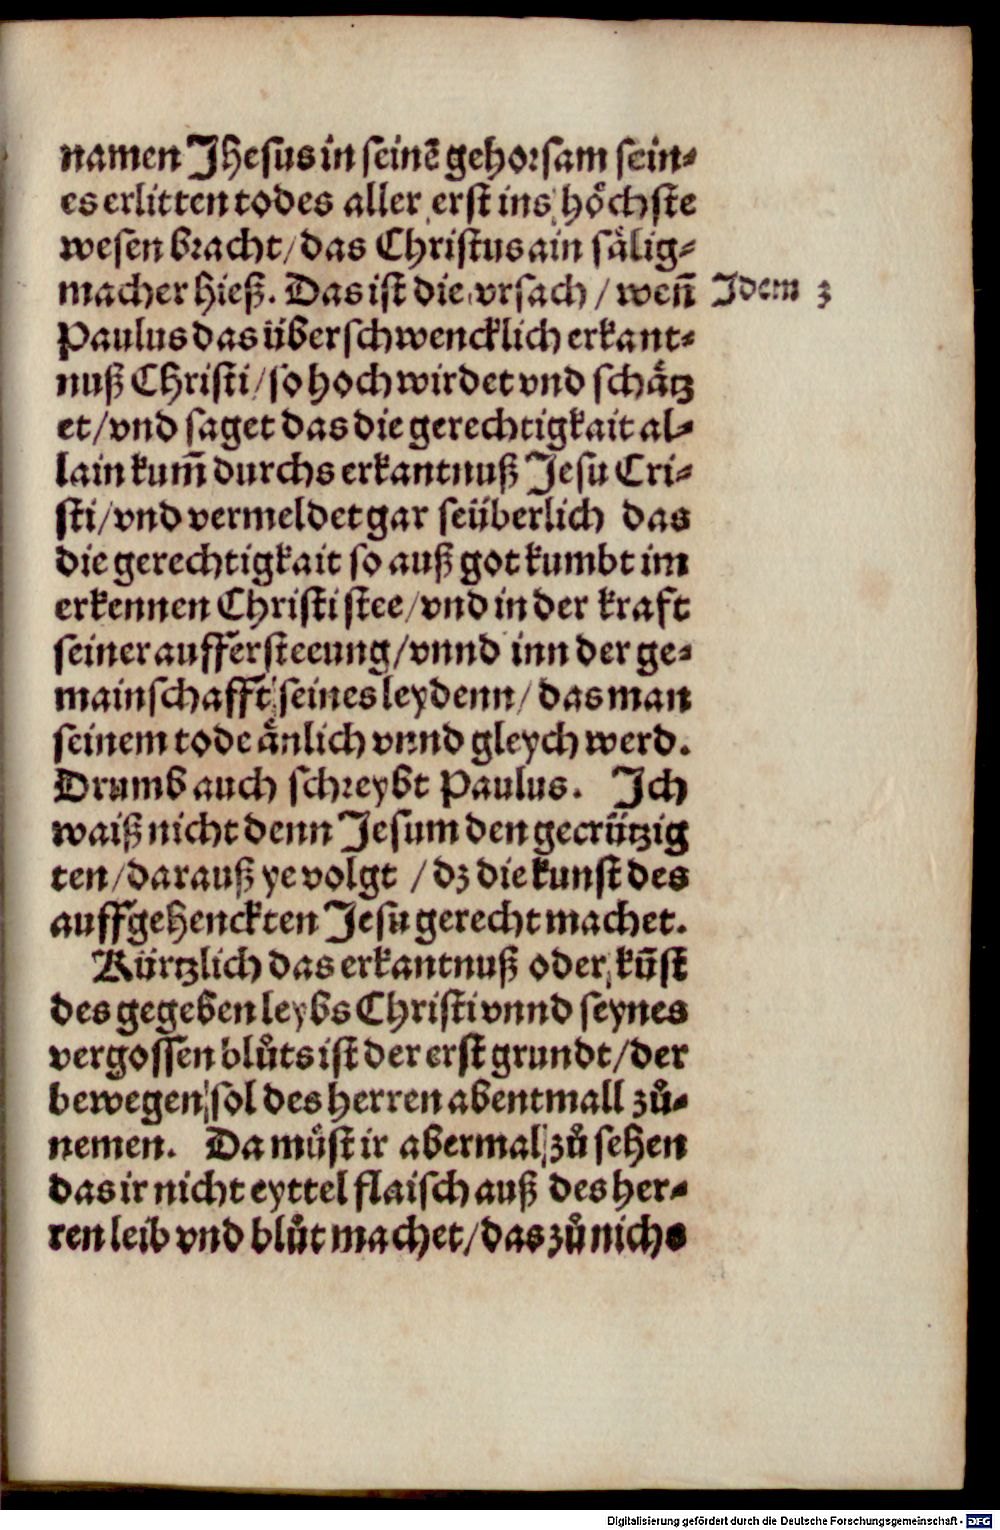 namen Jhesus in seinē gehorsam sein⸗
es erlitten todes aller erst ins höchste
wesen bracht/das Christus ain sälig⸗
macher hieß. Das ist die vrsach / wen̄ Idem 3
Paulus das überschwencklich erkant⸗
nuß Christi/so hoch wirdet vnd schätz
et/vnd saget das die gerechtigkait al⸗
lain kum̄ durchs erkantnuß Jesu Cri⸗
sti/vnd vermeldet gar seüberlich das
die gerechtigkait so auß got kumbt im
erkennen Christi stee/vnd in der kraft
seiner aufferssteeung/vnnd inn der ge⸗
mainschafft seines leydenn/das man
seinem tode änlich vnnd gleych werd.
Drumb auch schreybt Paulus. Ich
waiß nicht denn Jesum den gecrützig
ten/darauß ye volgt / dz die kunst des
auffgehenckten Jesu gerecht machet.
Kürtzlich das erkantnuß oder kūst
des gegeben leybs Christi vnnd seynes
vergossen blůts ist der erst grundt/der
bewegen sol des herren abentmall zů⸗
nemen. Da müst ir abermal zů sehen
das ir nicht eyttel flaisch auß des her⸗
ren leib vnd blůt machet/das zů nichs
Digitalisierung gefördert durch die Deutsche Forschungsgemeinschaft - DFG